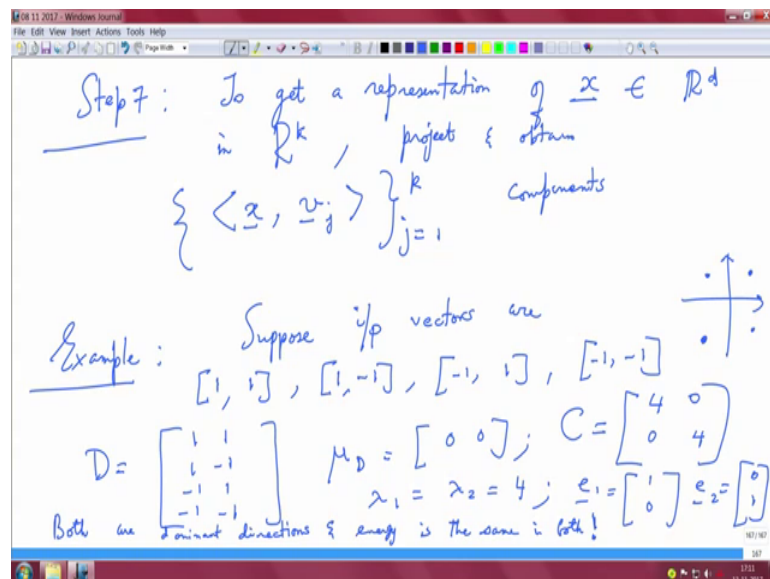 08 11 2017 - Windows Journal
File Edit View Insert Actions Tools Help
Page Width
Step 7 : To get a representation of x ∈ ℝ^d
in ℝ^k , project & obtain
{ < x , v_j > }_{j=1}^k components
Example : Suppose i/p vectors are
[1, 1] , [1, -1] , [-1, 1] , [-1, -1]
D = [1 1; 1 -1; -1 1; -1 -1] μ_D = [0 0] ; C = [4 0; 0 4]
λ_1 = λ_2 = 4 ; e_1 = [1; 0] e_2 = [0; 1]
Both are dominant directions & energy is the same in both !
167/167
167
17:11